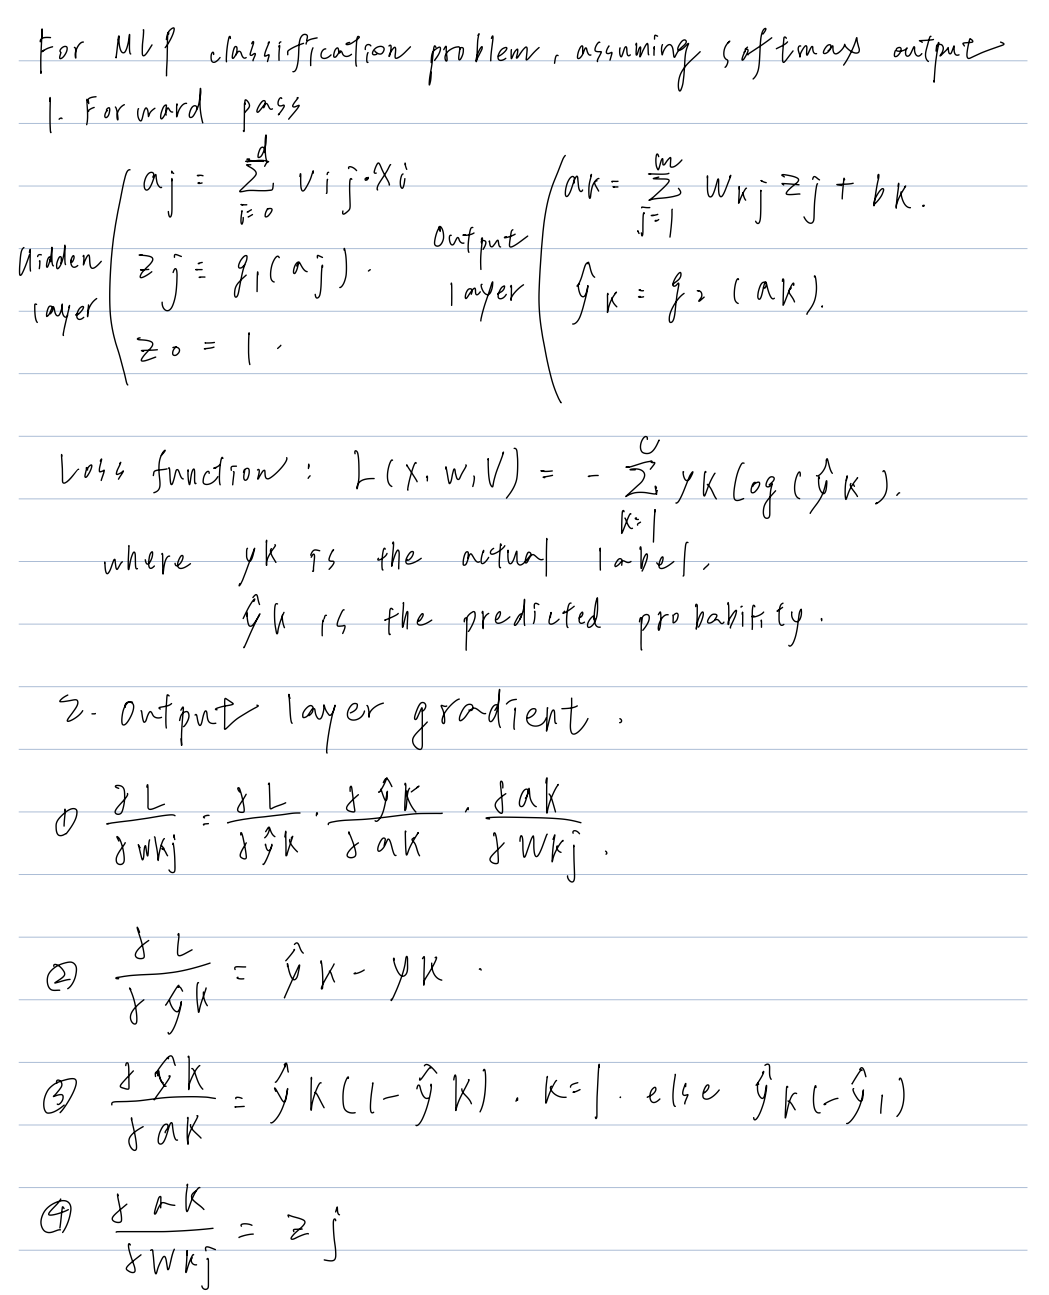 For MLP classification problem, assuming softmax output
1. Forward pass
Hidden layer
aj = Σ_{i=0}^{d} vij·xi
zj = g1(aj).
z0 = 1.
Output layer
ak = Σ_{j=1}^{m} wkj zj + bk.
ŷk = g2(ak).
Loss function: L(x, w, V) = - Σ_{k=1}^{C} yk log(ŷk).
where yk is the actual label,
ŷk is the predicted probability.
2. Output layer gradient.
① ∂L/∂wkj = ∂L/∂ŷk · ∂ŷk/∂ak · ∂ak/∂wkj.
② ∂L/∂ŷk = ŷk - yk.
③ ∂ŷk/∂ak = ŷk(1-ŷk). k=1. else ŷk(-ŷ1)
④ ∂ak/∂wkj = zj